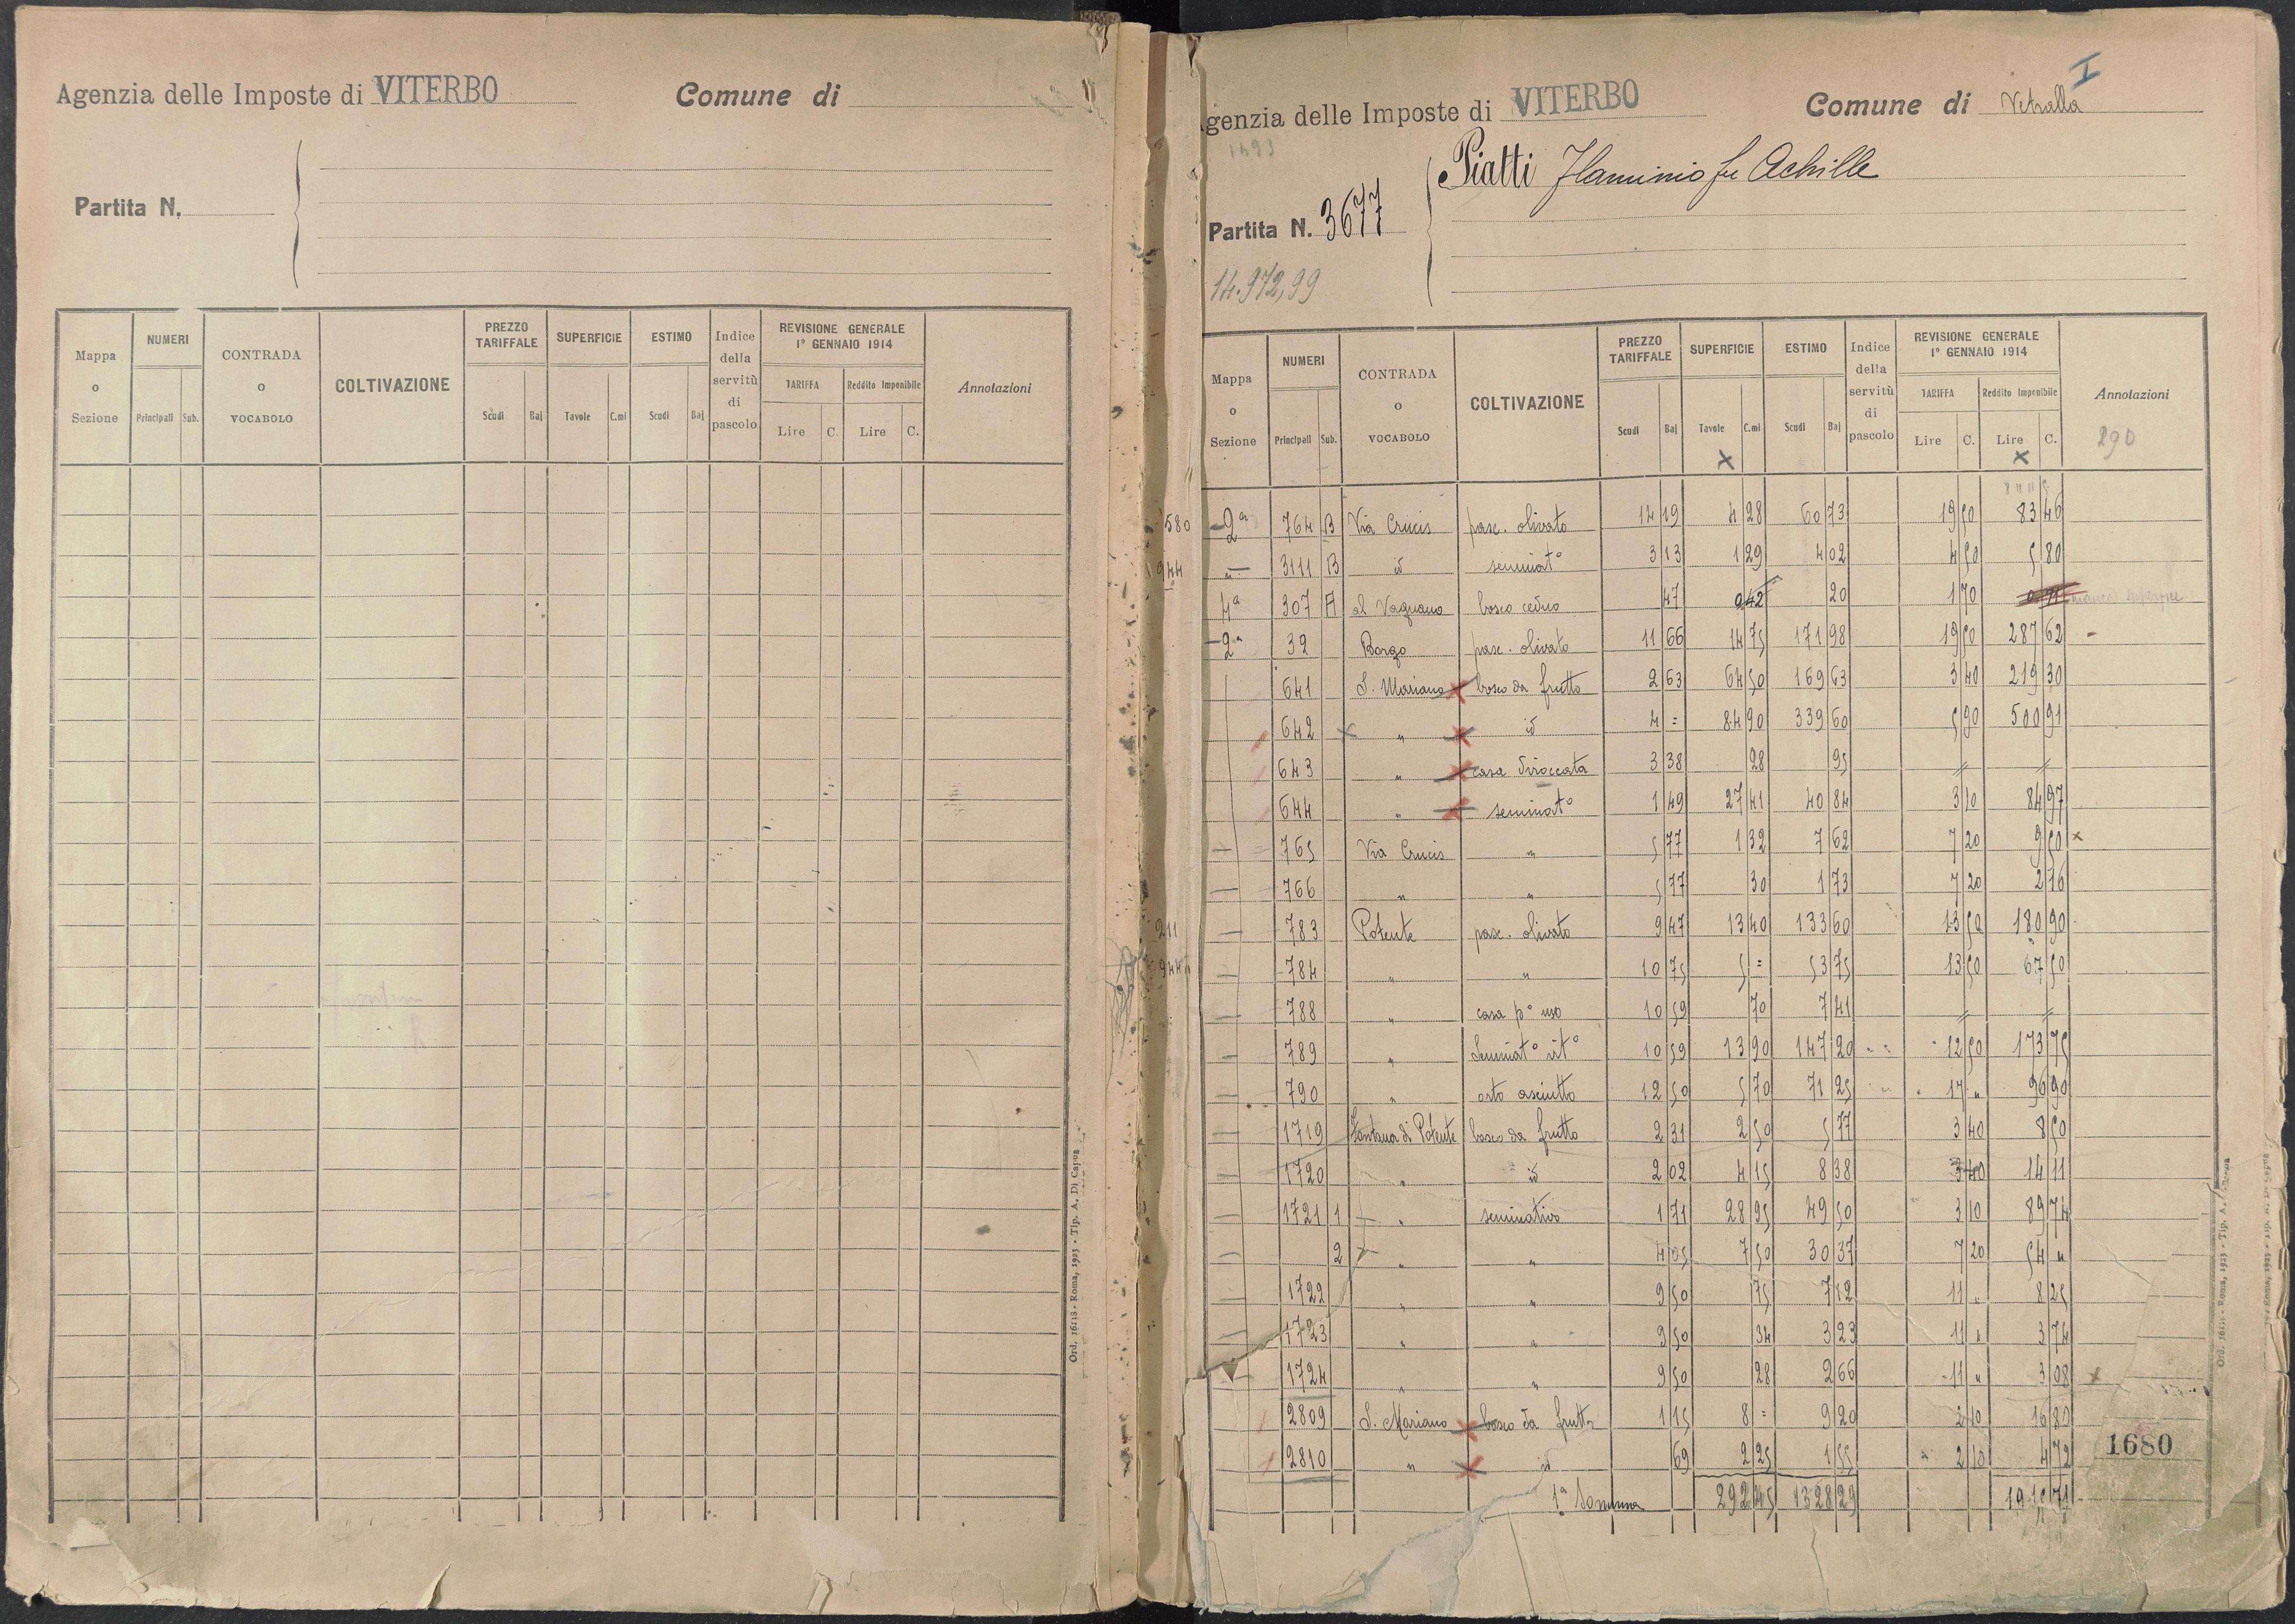 Agenzia delle Imposte di VITERBO Comune di
Partita N.
Mappa o Sezione | NUMERI Principali Sub. | CONTRADA o VOCABOLO | COLTIVAZIONE | PREZZO TARIFFALE Scudi Baj | SUPERFICIE Tavole C.mi | ESTIMO Scudi Baj | Indice della servitù di pascolo | REVISIONE GENERALE 1° GENNAIO 1914 TARIFFA Lire C. Reddito Imponibile Lire C. | Annotazioni
Ord. 16138 - Roma, 1923 - Tip. A. Di Capua
genzia delle Imposte di VITERBO Comune di Vetralla I
1493
Piatti Flaminio fu Achille
Partita N. 3677
14.972,99
Mappa o Sezione | NUMERI Principali Sub. | CONTRADA o VOCABOLO | COLTIVAZIONE | PREZZO TARIFFALE Scudi Baj | SUPERFICIE Tavole C.mi | ESTIMO Scudi Baj | Indice della servitù di pascolo | REVISIONE GENERALE 1° GENNAIO 1914 TARIFFA Lire C. Reddito Imponibile Lire C. | Annotazioni
290
x x
580 2ª 764 B Via Crucis pasc. olivato 14 19 4 28 60 73 19 50 83 46
944 " 3111 B id seminat° 3 13 1 29 4 02 4 50 5 80
4ª 307 A al Vagnano bosco ceduo 47 0 42 20 1 70
2ª 39 Borgo pasc. olivato 11 66 14 75 171 98 19 50 287 62
641 S. Mariano bosco da frutto 2 63 64 50 169 63 3 40 219 30
642 " id 4 = 84 90 339 60 5 90 500 91
643 " casa diroccata 3 38 28 95 " "
644 " seminat° 1 49 27 41 40 84 3 10 84 97
765 Via Crucis " 5 77 1 32 7 62 7 20 9 50 x
766 " " 5 77 30 1 73 7 20 2 16
211 783 Potente pasc. olivato 9 47 13 40 133 60 13 50 180 90
944 784 " " 10 75 5 = 53 75 13 50 67 50
788 " casa p° uso 10 59 70 7 41 " "
789 " Seminat° vit° 10 59 13 90 147 20 12 50 173 75
790 " orto asciutto 12 50 5 70 71 25 17 " 96 90
1719 Fontana di Potente bosco da frutto 2 31 2 50 5 77 3 40 8 50
1720 " id 2 02 4 15 8 38 3 40 14 11
1721 1 " seminativo 1 71 28 95 49 50 3 10 89 74
2 " " 4 05 7 50 30 37 7 20 54 "
1722 " " 9 50 75 7 12 11 " 8 25
1723 " " 9 50 34 3 23 11 " 3 74
1724 " " 9 50 28 2 66 11 " 3 08
2809 S. Mariano bosco da frutto 1 15 8 = 9 20 2 10 16 80
2810 " id 69 2 25 1 55 2 10 4 72
1680
1ª Somma 292 45 1328 29